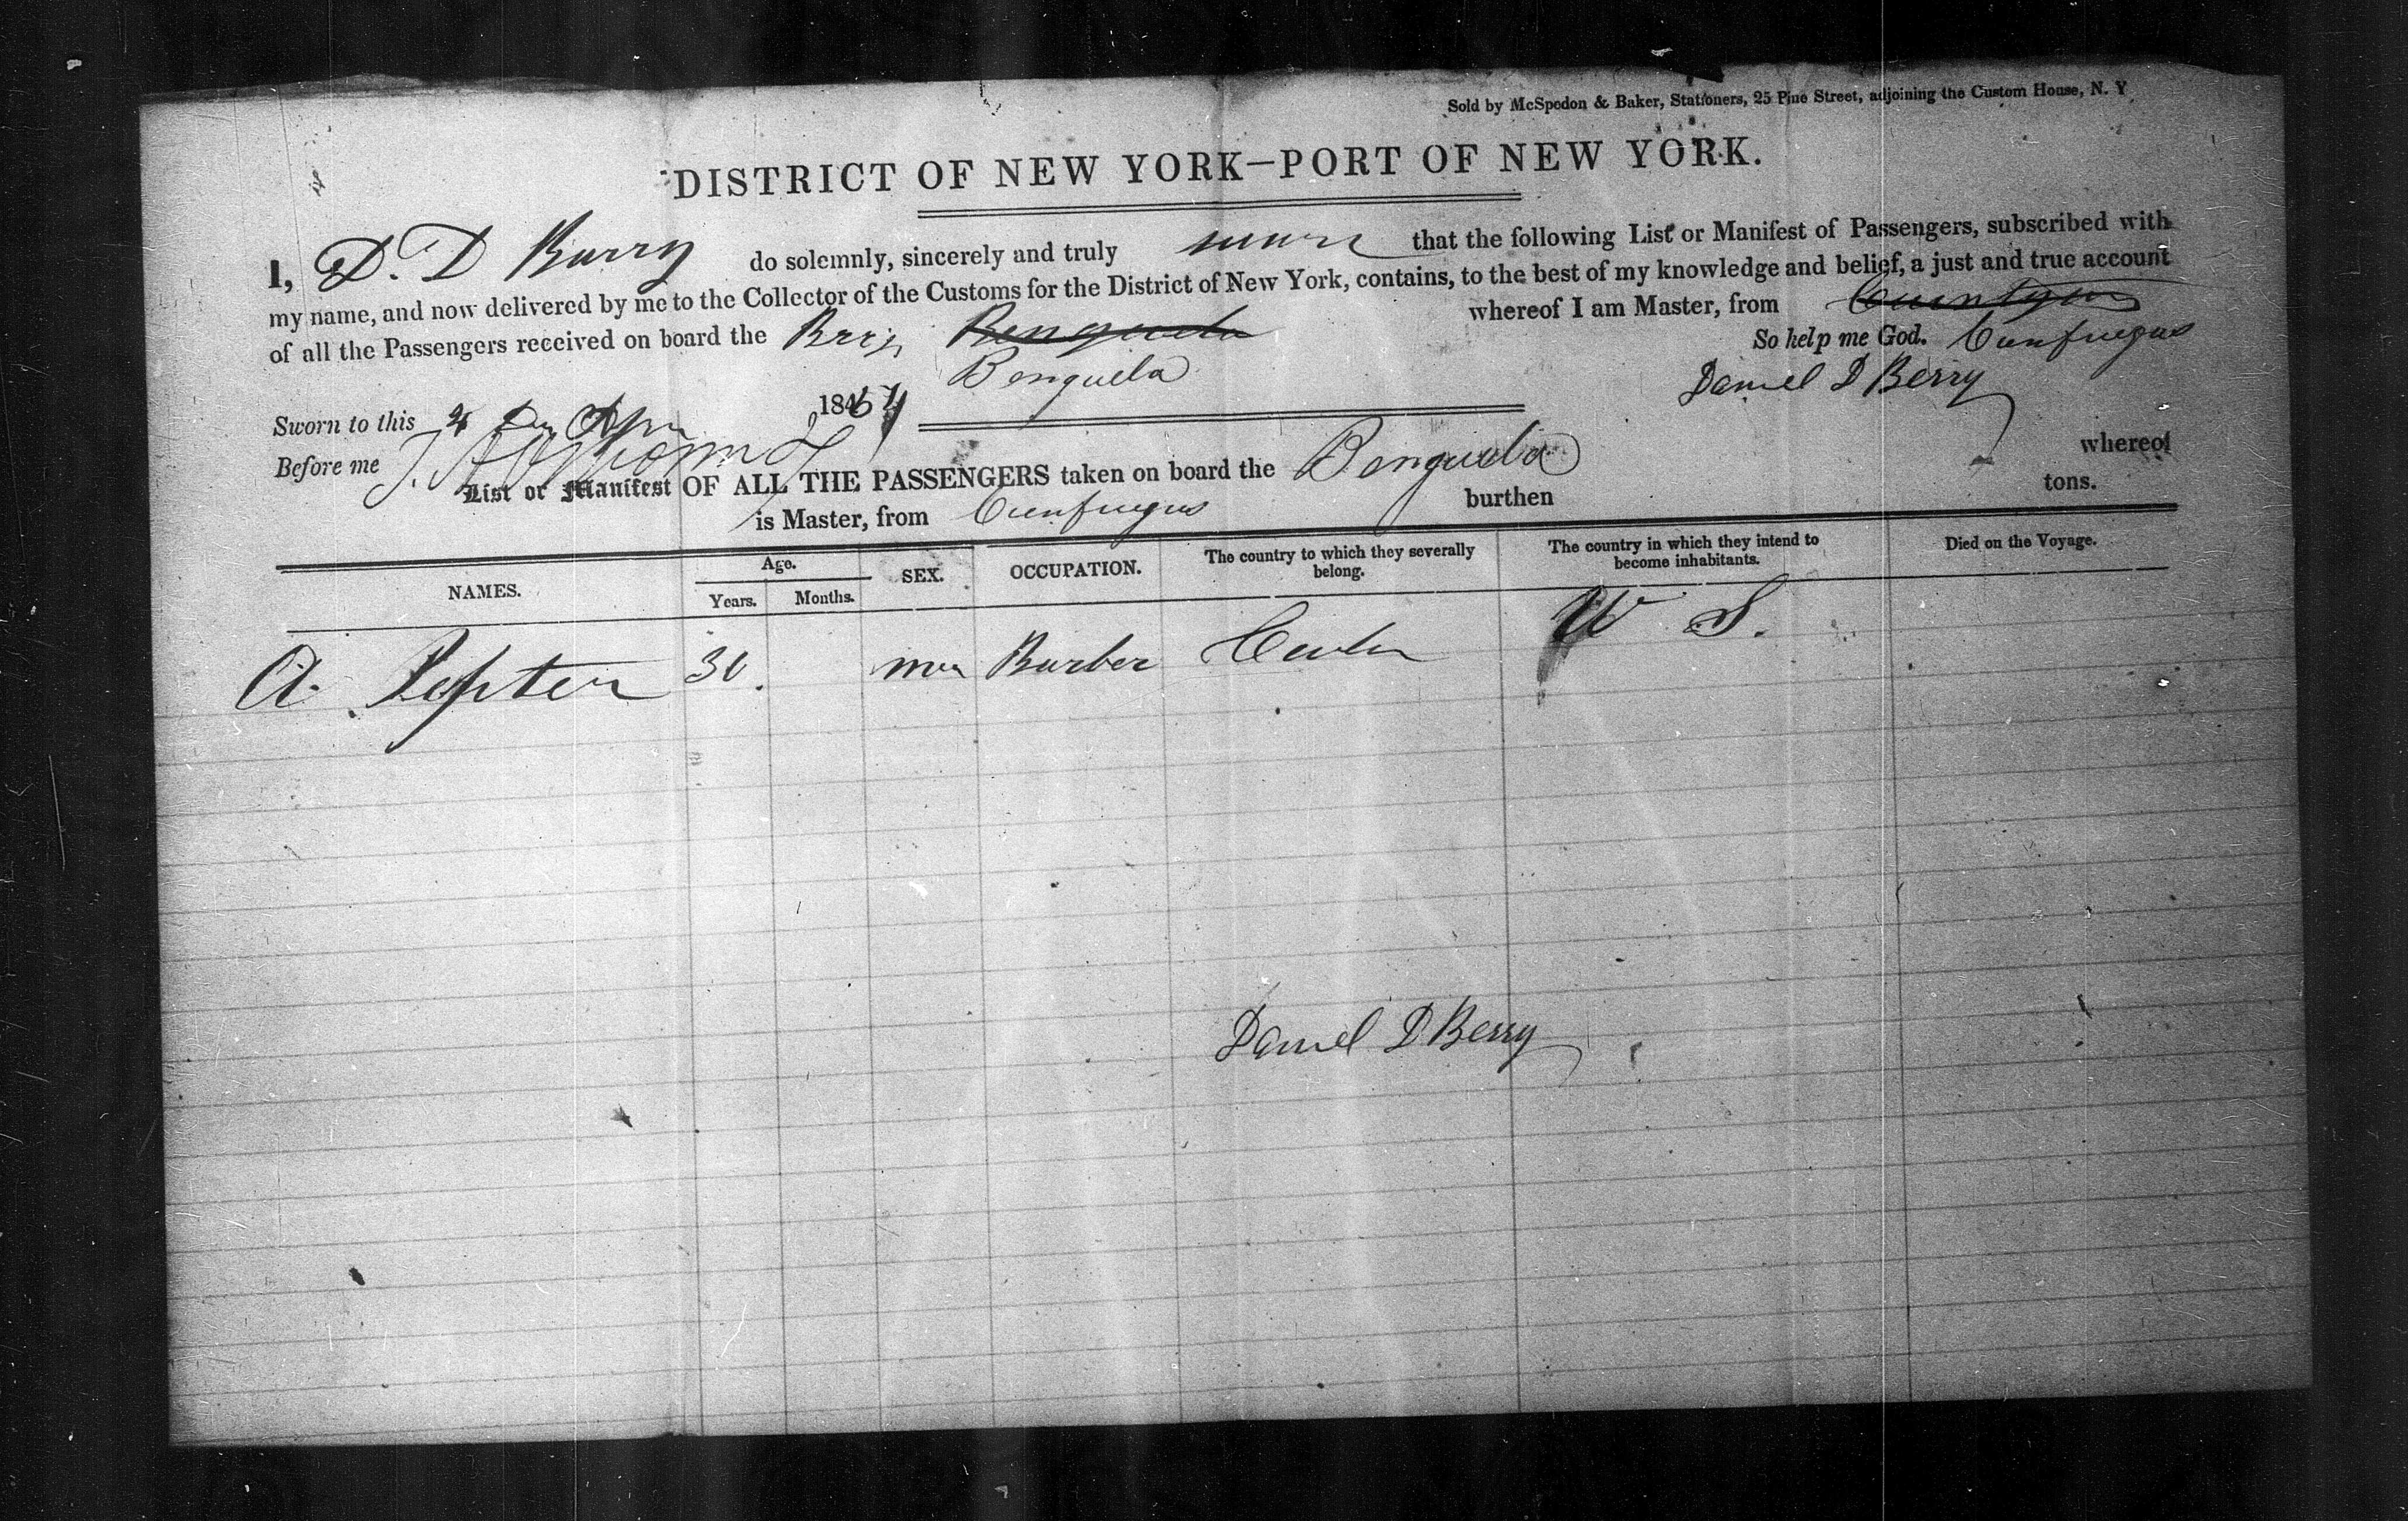 Sold by McSpedon & Baker, Stationers, 25 Pine Street, adjoining the Custom House, N. Y
DISTRICT OF NEW YORK—PORT OF NEW YORK.
I, D. D Barry do solemnly, sincerely and truly swear that the following List or Manifest of Passengers, subscribed with
my name, and now delivered by me to the Collector of the Customs for the District of New York, contains, to the best of my knowledge and belief, a just and true account
of all the Passengers received on board the Brig Benguela whereof I am Master, from
Benguela So help me God. Cienfuegus
Daniel D Berry
Sworn to this 4 Day Apr 184
Before me
List or Manifest OF ALL THE PASSENGERS taken on board the Benguela whereof
is Master, from Cienfuegus burthen tons.
NAMES. Age. Years. Months. SEX. OCCUPATION. The country to which they severally belong. The country in which they intend to become inhabitants. Died on the Voyage.
A. 30 Barber Cuba U S.
Daniel D Berry